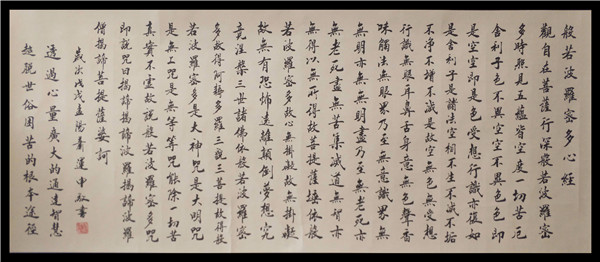 般若波羅密多心經
觀自在菩薩行深般若波羅密
多時照見五蘊皆空度一切苦厄
舍利子色不異空空不異色色即
是空空即是色受想行識亦復如
是舍利子是諸法空相不生不滅不垢
不淨不增不減是故空無色無受想
行識無眼耳鼻舌身意無色聲香
味觸法無眼界乃至無意識界無
無明亦無無明盡乃至無老死亦
無老死盡無苦集滅道無智亦
無得以無所得故菩提薩埵依般
若波羅密多故心無掛礙無掛礙
故無有恐怖遠離顛倒夢想究
竟涅槃三世諸佛依般若波羅密
多故得阿耨多羅三藐三菩提故得般
若波羅密多是大神咒是大明咒
是無上咒是無等等咒能除一切苦
真實不虛故說般若波羅密多咒
即說咒曰揭諦揭諦波羅揭諦波羅
僧揭諦菩提薩婆訶
歲次戊戌孟陽書
透過心量廣大的通達智慧
超脫世俗困苦的根本途徑